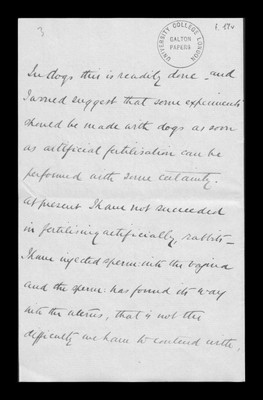 3
UNIVERSITY COLLEGE LONDON
GALTON
PAPERS
In dogs this is readily done - and
I would suggest that some experiments
should be made with dogs as soon
as artificial fertilisation can be
performed with some certainty.
At present I have not succeeded
in fertilising artificially, rabbits -
I have injected sperm into the vagina
and the sperm: has found its way
into the uterus, that is not the
difficulty we have to contend with.